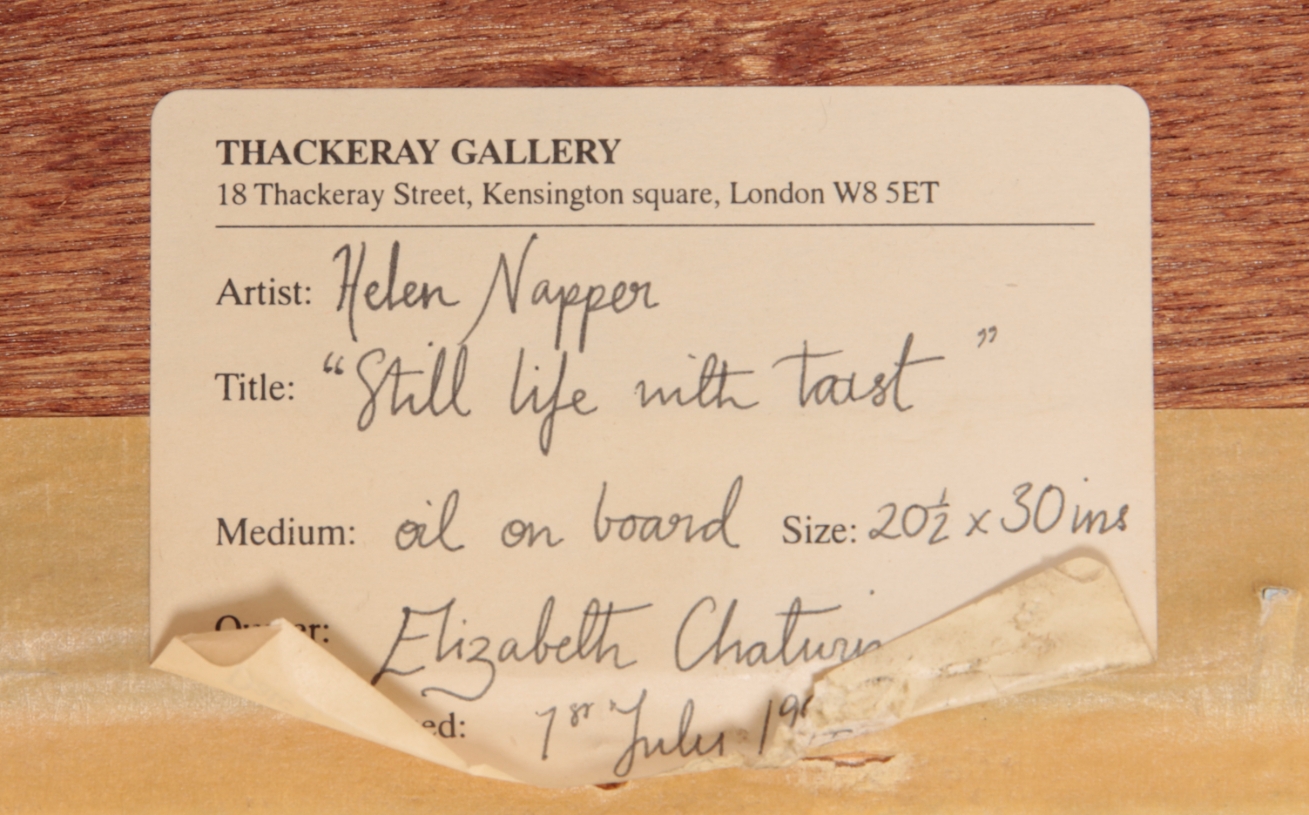 THACKERAY GALLERY
18 Thackeray Street, Kensington square, London W8 5ET
Artist: Helen Napper
Title: "Still life with taust"
Medium: oil on board Size: 20½ x 30 ins
Elizabeth
ed: 1st July